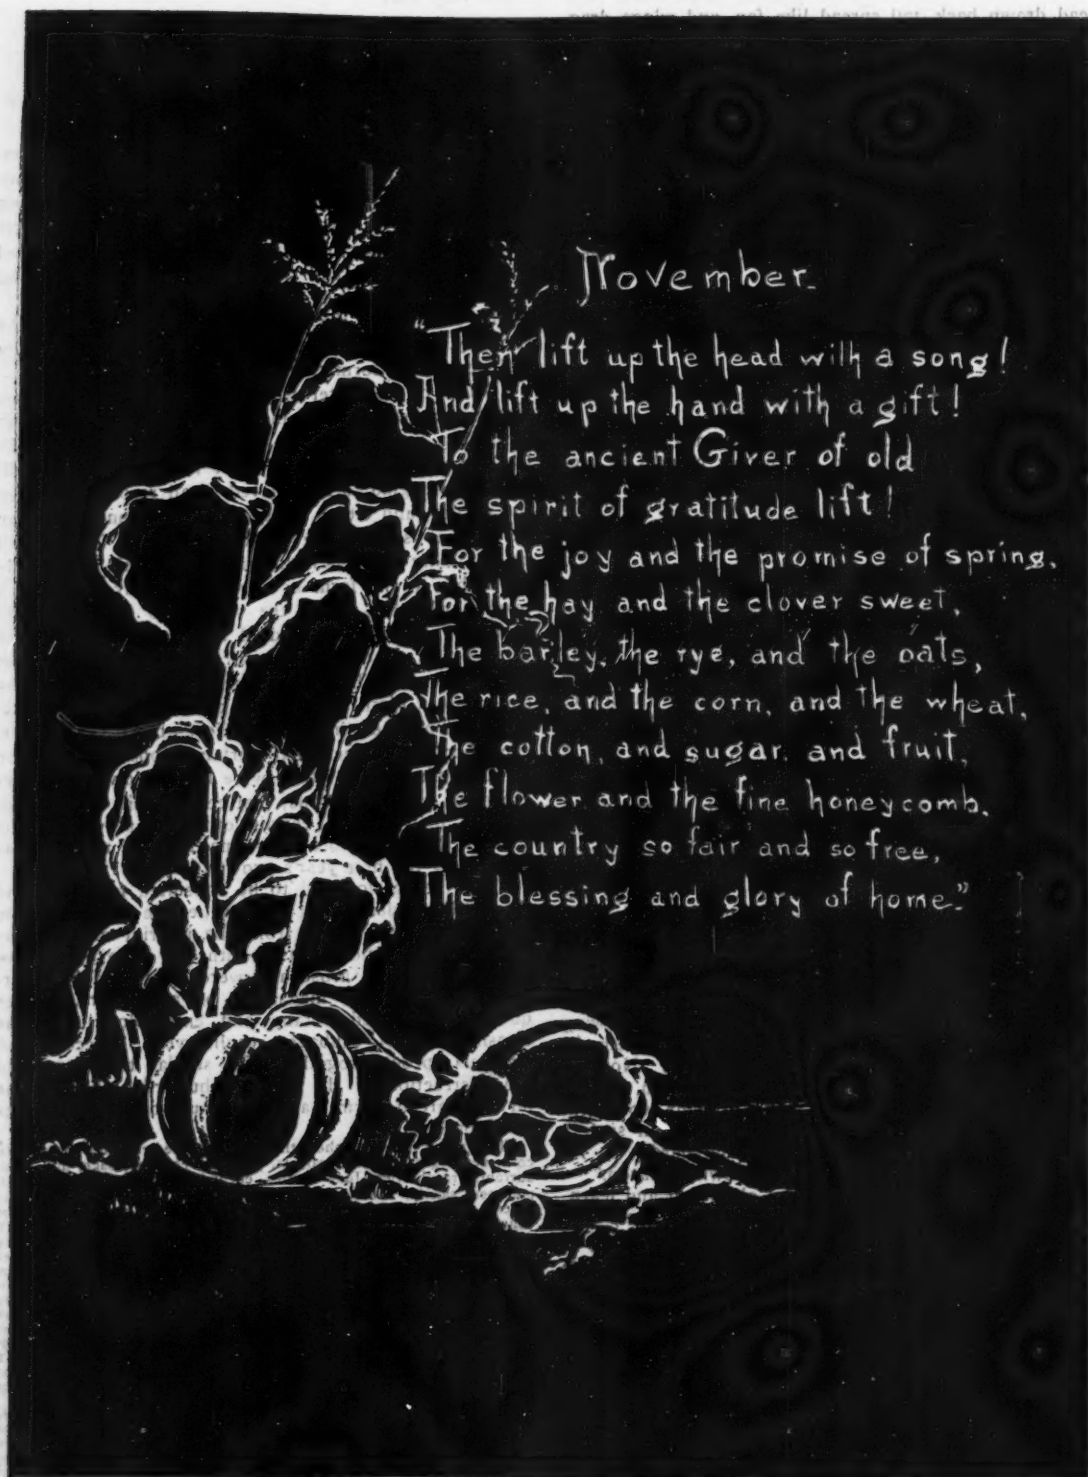 November.
"Then lift up the head with a song!
And lift up the hand with a gift!
To the ancient Giver of old
The spirit of gratitude lift!
For the joy and the promise of spring,
For the hay and the clover sweet,
The barley, the rye, and the oats,
The rice, and the corn, and the wheat,
The cotton, and sugar, and fruit,
The flower and the fine honeycomb,
The country so fair and so free,
The blessing and glory of home."